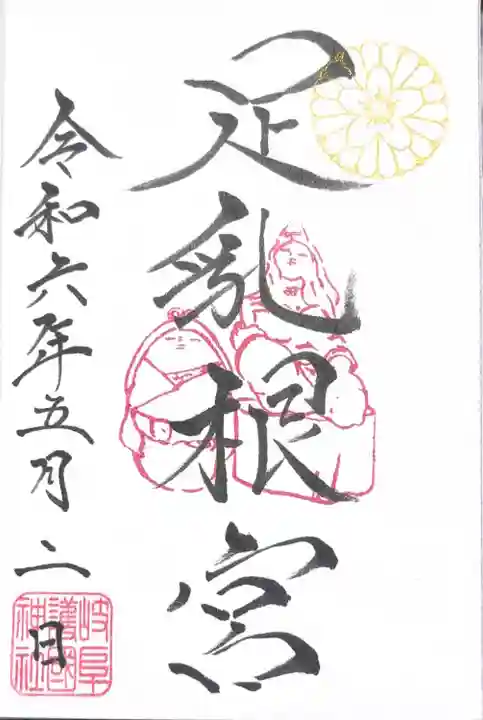 足乳根宮
令和六年五月二日
岐阜
護國
神社